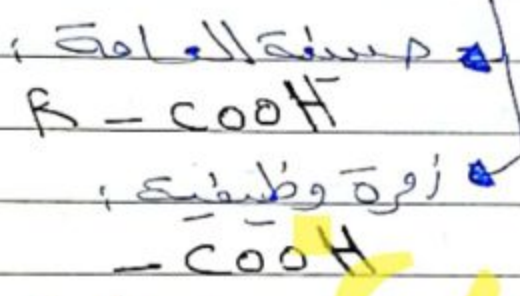 صيغة العامة :
R - COOH
زمرة وظيفية :
- COOH